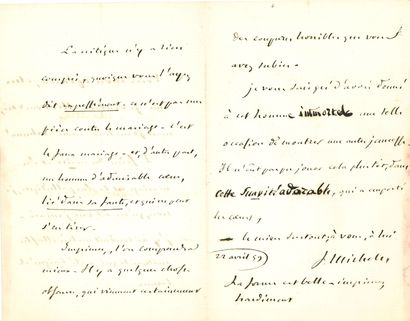 La critique n'y a rien
compris, quoique vous l'ayez
dit expressément. ce n'est pas une
pièce contre le mariage - C'est
le faux mariage - et, d'autre part,
un homme d'admirable cœur,
lié dans sa faute, et qui ne peut
s'en tirer.
Imprimez, l'on comprendra
mieux - Il y a quelque chose
obscur, qui vient certainement
des coupures horribles que vous
avez subies.
je vous sais gré d'avoir donné
à cet homme immortel une telle
occasion de montrer une autre jeunesse.
Il n'eût pas pu jouer cela plus tôt, dans
cette suavité adorable, qui a emporté
les cœurs,
- le mien surtout, à vous, à lui
22 avril 59 J. Michelet
La forme est belle - imprimez
hardiment